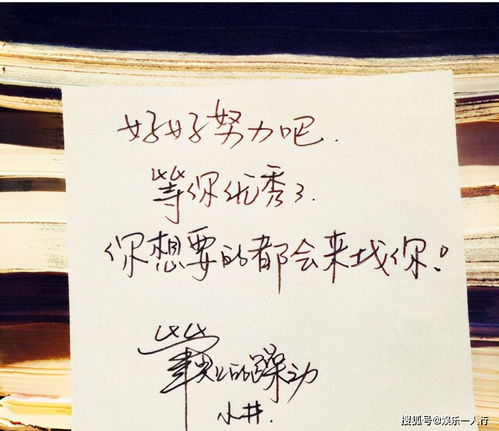 好好努力吧.
等你优秀了.
你想要的都会来找你!
的躁动
小井.
搜狐号@娱乐一人行